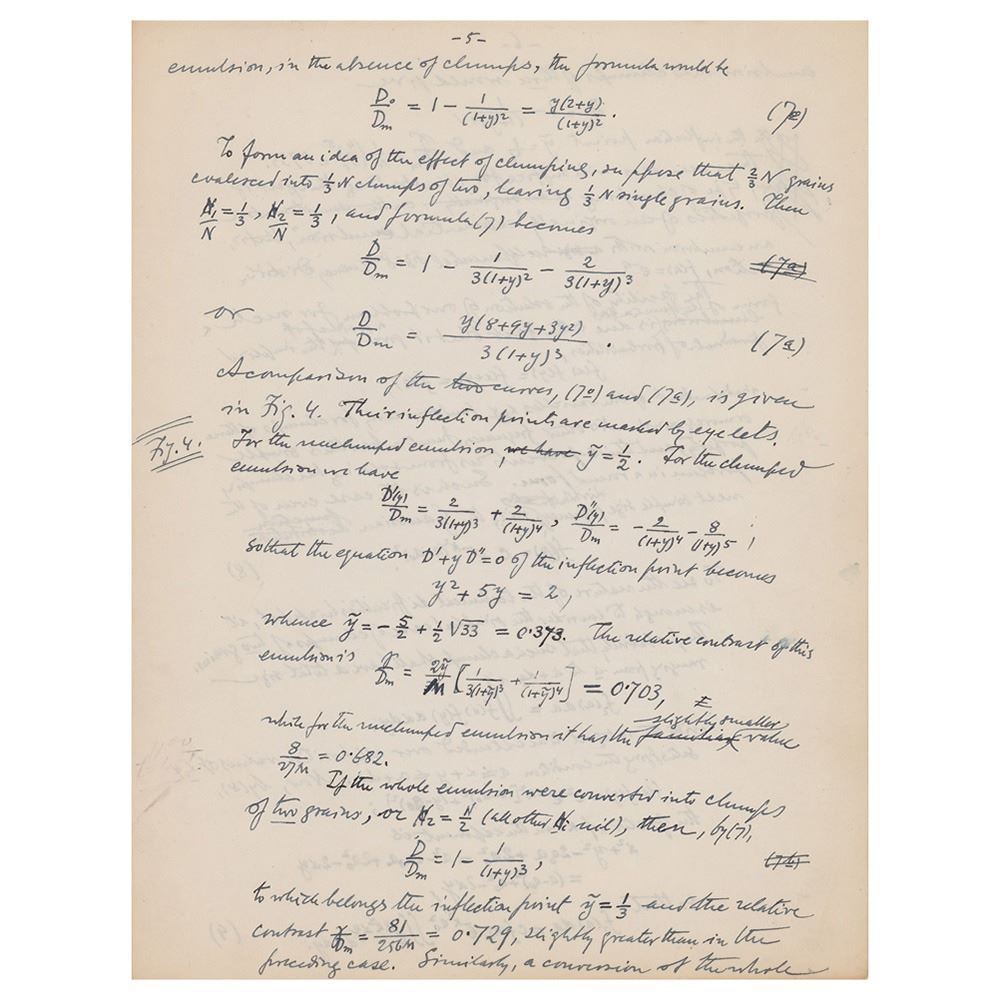 -5-
emulsion, in the absence of clumps, the formula would be
D°/Dm = 1 - 1/(1+y)² = y(2+y)/(1+y)². (7o)
To form an idea of the effect of clumping, suppose that 2/3 N grains
coalesced into 1/3 N clumps of two, leaving 1/3 N single grains. Then
N₁/N = 1/3, N₂/N = 1/3, and formula (7) becomes
D/Dm = 1 - 1/3(1+y)² - 2/3(1+y)³ (7a)
or D/Dm = y(8+9y+3y²)/3(1+y)³. (7a)
A comparison of the two curves, (7o) and (7a), is given
in Fig. 4. Their inflection points are marked by eyelets.
Fig. 4. For the unclumped emulsion, we have ỹ = 1/2. For the clumped
emulsion we have
D'(y)/Dm = 2/3(1+y)³ + 2/(1+y)⁴, D''(y)/Dm = - 2/(1+y)⁴ - 8/(1+y)⁵;
so that the equation D'+yD''=0 of the inflection point becomes
y² + 5y = 2,
whence ỹ = - 5/2 + 1/2 √33 = 0.373. The relative contrast of this
emulsion is γ/Dm = 2ỹ/M [1/3(1+ỹ)³ + 1/(1+ỹ)⁴] = 0.703,
slightly smaller
while for the unclumped emulsion it has the familiar value
8/27M = 0.682.
If the whole emulsion were converted into clumps
of two grains, or N₂ = N/2 (all other Nᵢ nil), then, by (7),
D/Dm = 1 - 1/(1+y)³, (7b)
to which belongs the inflection point ỹ = 1/3 and the relative
contrast γ/Dm = 81/256M = 0.729, slightly greater than in the
preceding case. Similarly, a conversion of the whole